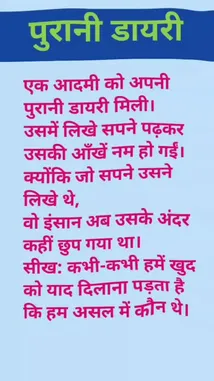 पुरानी डायरी
एक आदमी को अपनी
पुरानी डायरी मिली।
उसमें लिखे सपने पढ़कर
उसकी आँखें नम हो गईं।
क्योंकि जो सपने उसने
लिखे थे,
वो इंसान अब उसके अंदर
कहीं छुप गया था।
सीख: कभी-कभी हमें खुद
को याद दिलाना पड़ता है
कि हम असल में कौन थे।